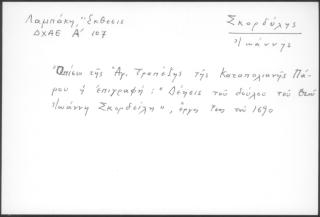 Λαμπάκη, "Έκθεσις
ΔΧΑΕ Α' 107
Σκορδίλης
Ἰωάννης
Ὄπισθεν τῆς Ἁγ. Τραπέζης τῆς Καταπολιανῆς Πά-
ρου ἡ ἐπιγραφή: "Δέησις τοῦ δούλου τοῦ Θεοῦ
Ἰωάννη Σκορδίλη", ἔργον ἴσως τοῦ 1690